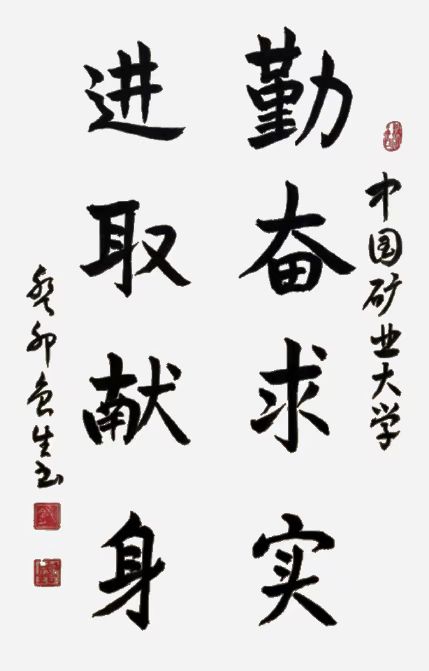 中国矿业大学
勤奋求实
进取献身
癸卯 生书